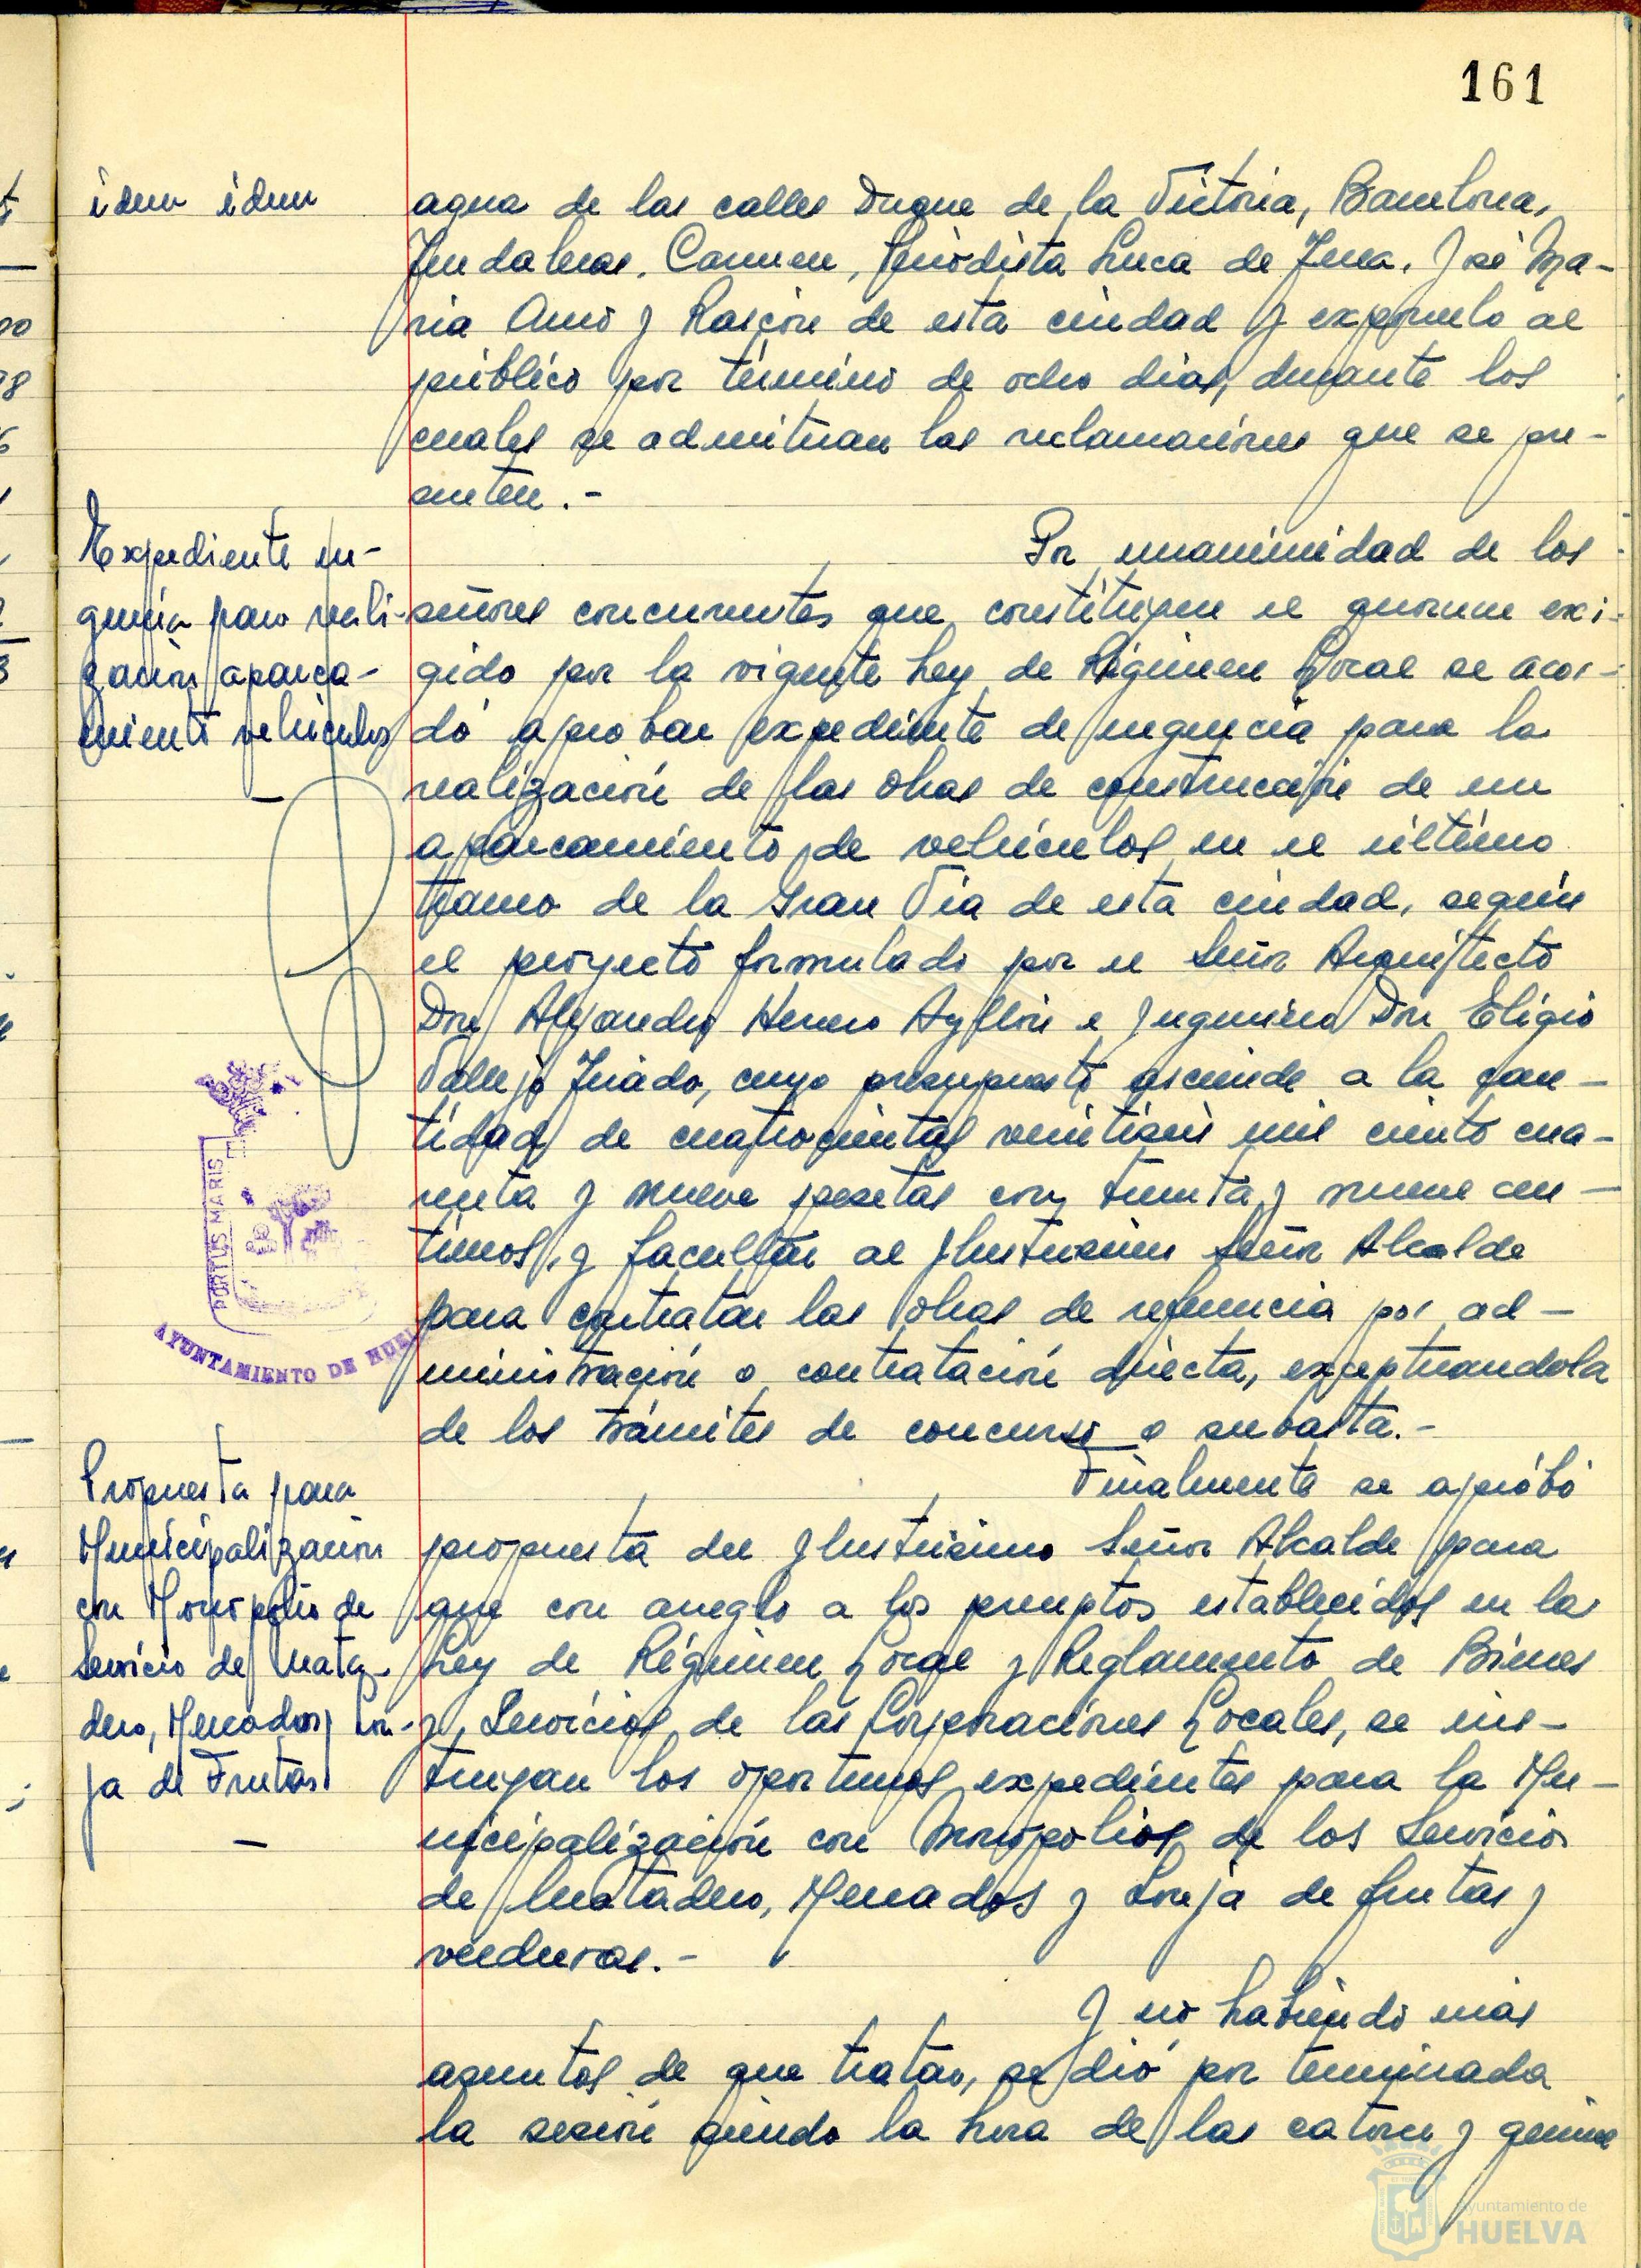 161
idem idem
agua de las calles Duque de la Victoria, Barcelona,
Fundadores, Carmen, Periodista Luca de Tena, José Ma-
ria Amo y Rascón de esta ciudad y exponerlo al
público por término de ocho dias, durante los
cuales se admitiran las reclamaciones que se pre-
senten.-
Expediente ur-
gencia para reali-
zación aparca-
miento vehículos
Por unanimidad de los
señores concurrentes que constituyen el quorum exi-
gido por la vigente Ley de Régimen Local se acor-
dó aprobar expediente de urgencia para la
realización de las obras de construcción de un
aparcamiento de vehículos en el último
tramo de la Gran Via de esta ciudad, según
el proyecto formulado por el Señor Arquitecto
Don Alejandro Herrero Ayllón e Ingeniero Don Eligio
Vallejo, cuyo presupuesto asciende a la can-
tidad de cuatrocientas veintiseis mil ciento cua-
renta y nueve pesetas con treinta y nueve cen-
timos, y facultar al Ilustrisimo Señor Alcalde
para contratar las obras de referencia por ad-
ministración o contratación directa, exceptuandola
de los trámites de concurso o subasta.-
PORTUS MARIS
AYUNTAMIENTO DE HUEL
Propuesta para
Municipalización
con Monopolio de
Servicio de Mata-
dero, Mercados y Lon-
ja de Frutas
Finalmente se aprobó
propuesta del Ilustrisimo Señor Alcalde para
que con arreglo a los preceptos establecidos en la
Ley de Régimen Local y Reglamento de Bienes
y Servicios de las Corporaciones Locales, se ins-
truyan los oportunos expedientes para la Mu-
nicipalización con Monopolios de los Servicios
de Matadero, Mercados y Lonja de frutas y
verduras.-
Y no habiendo más
asuntos de que tratar, se dió por terminada
la sesión siendo la hora de las catorce y quince
Ayuntamiento de
HUELVA